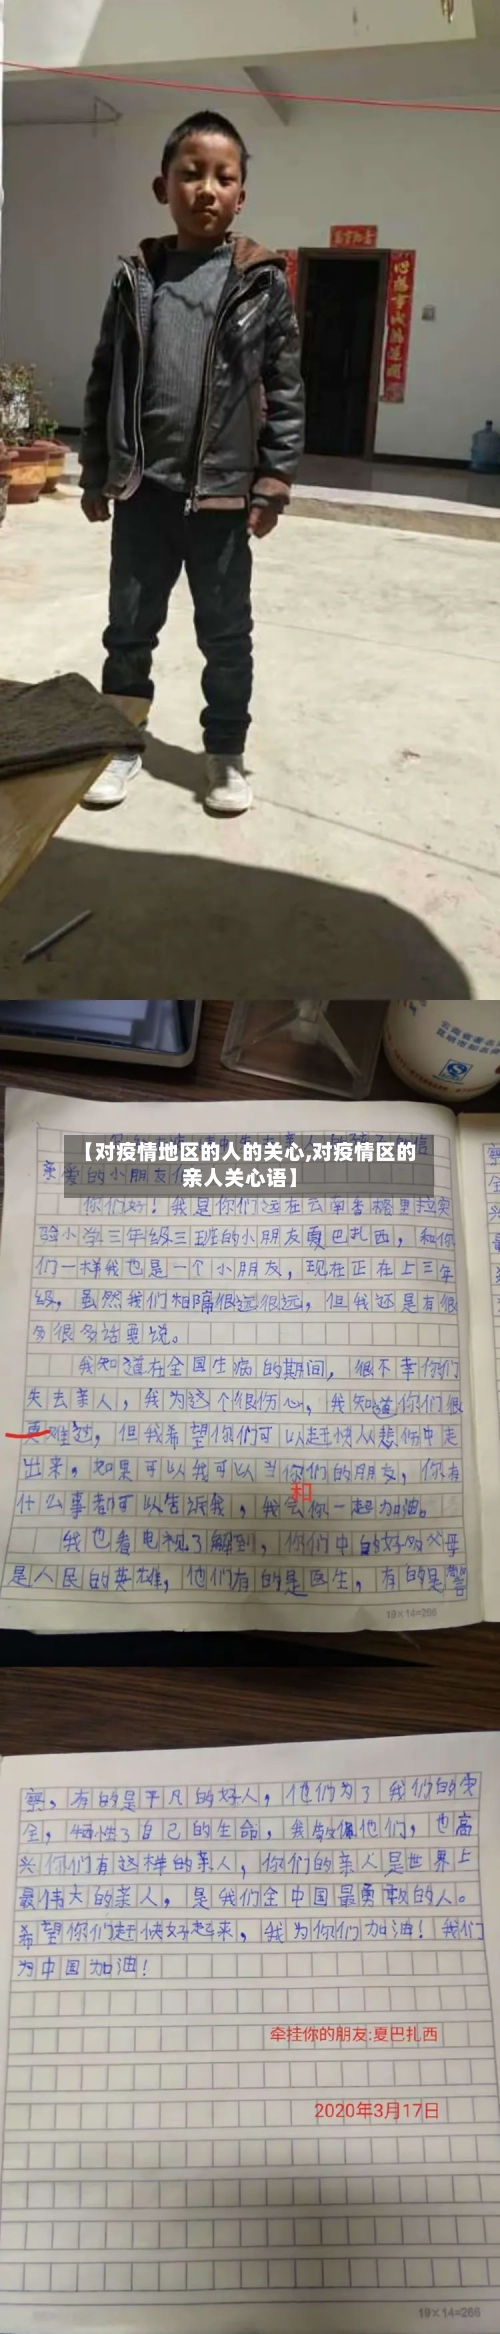 心想事成
【对疫情地区的人的关心,对疫情区的
亲人关心语】
亲爱的小朋友们
你们好！我是你们远在云南香格里拉实
验小学三年级三班的小朋友夏巴扎西，和你
们一样我也是一个小朋友，现在正在上三年
级，虽然我们相隔很远很远，但我还是有很
多很多话要说。
我知道在全国生病的期间，很不幸你们
失去亲人，我为这个很伤心，我知道你们很
更难过，但我希望你们可以赶快从悲伤中走
出来，如果可以我可以当你们的朋友，你有
和
什么事都可以告诉我，我会你一起加油。
我也看电视了解到，你们中的好多父母
是人民的英雄，他们有的是医生，有的是警
19×14=266
察，有的是平凡的好人，他们为了我们的安
全，牺牲了自己的生命，我敬佩他们，也高
兴你们有这样的亲人，你们的亲人是世界上
最伟大的亲人，是我们全中国最勇敢的人。
希望你们赶快好起来，我为你们加油！我们
为中国加油！
牵挂你的朋友:夏巴扎西
2020年3月17日
19×14=266